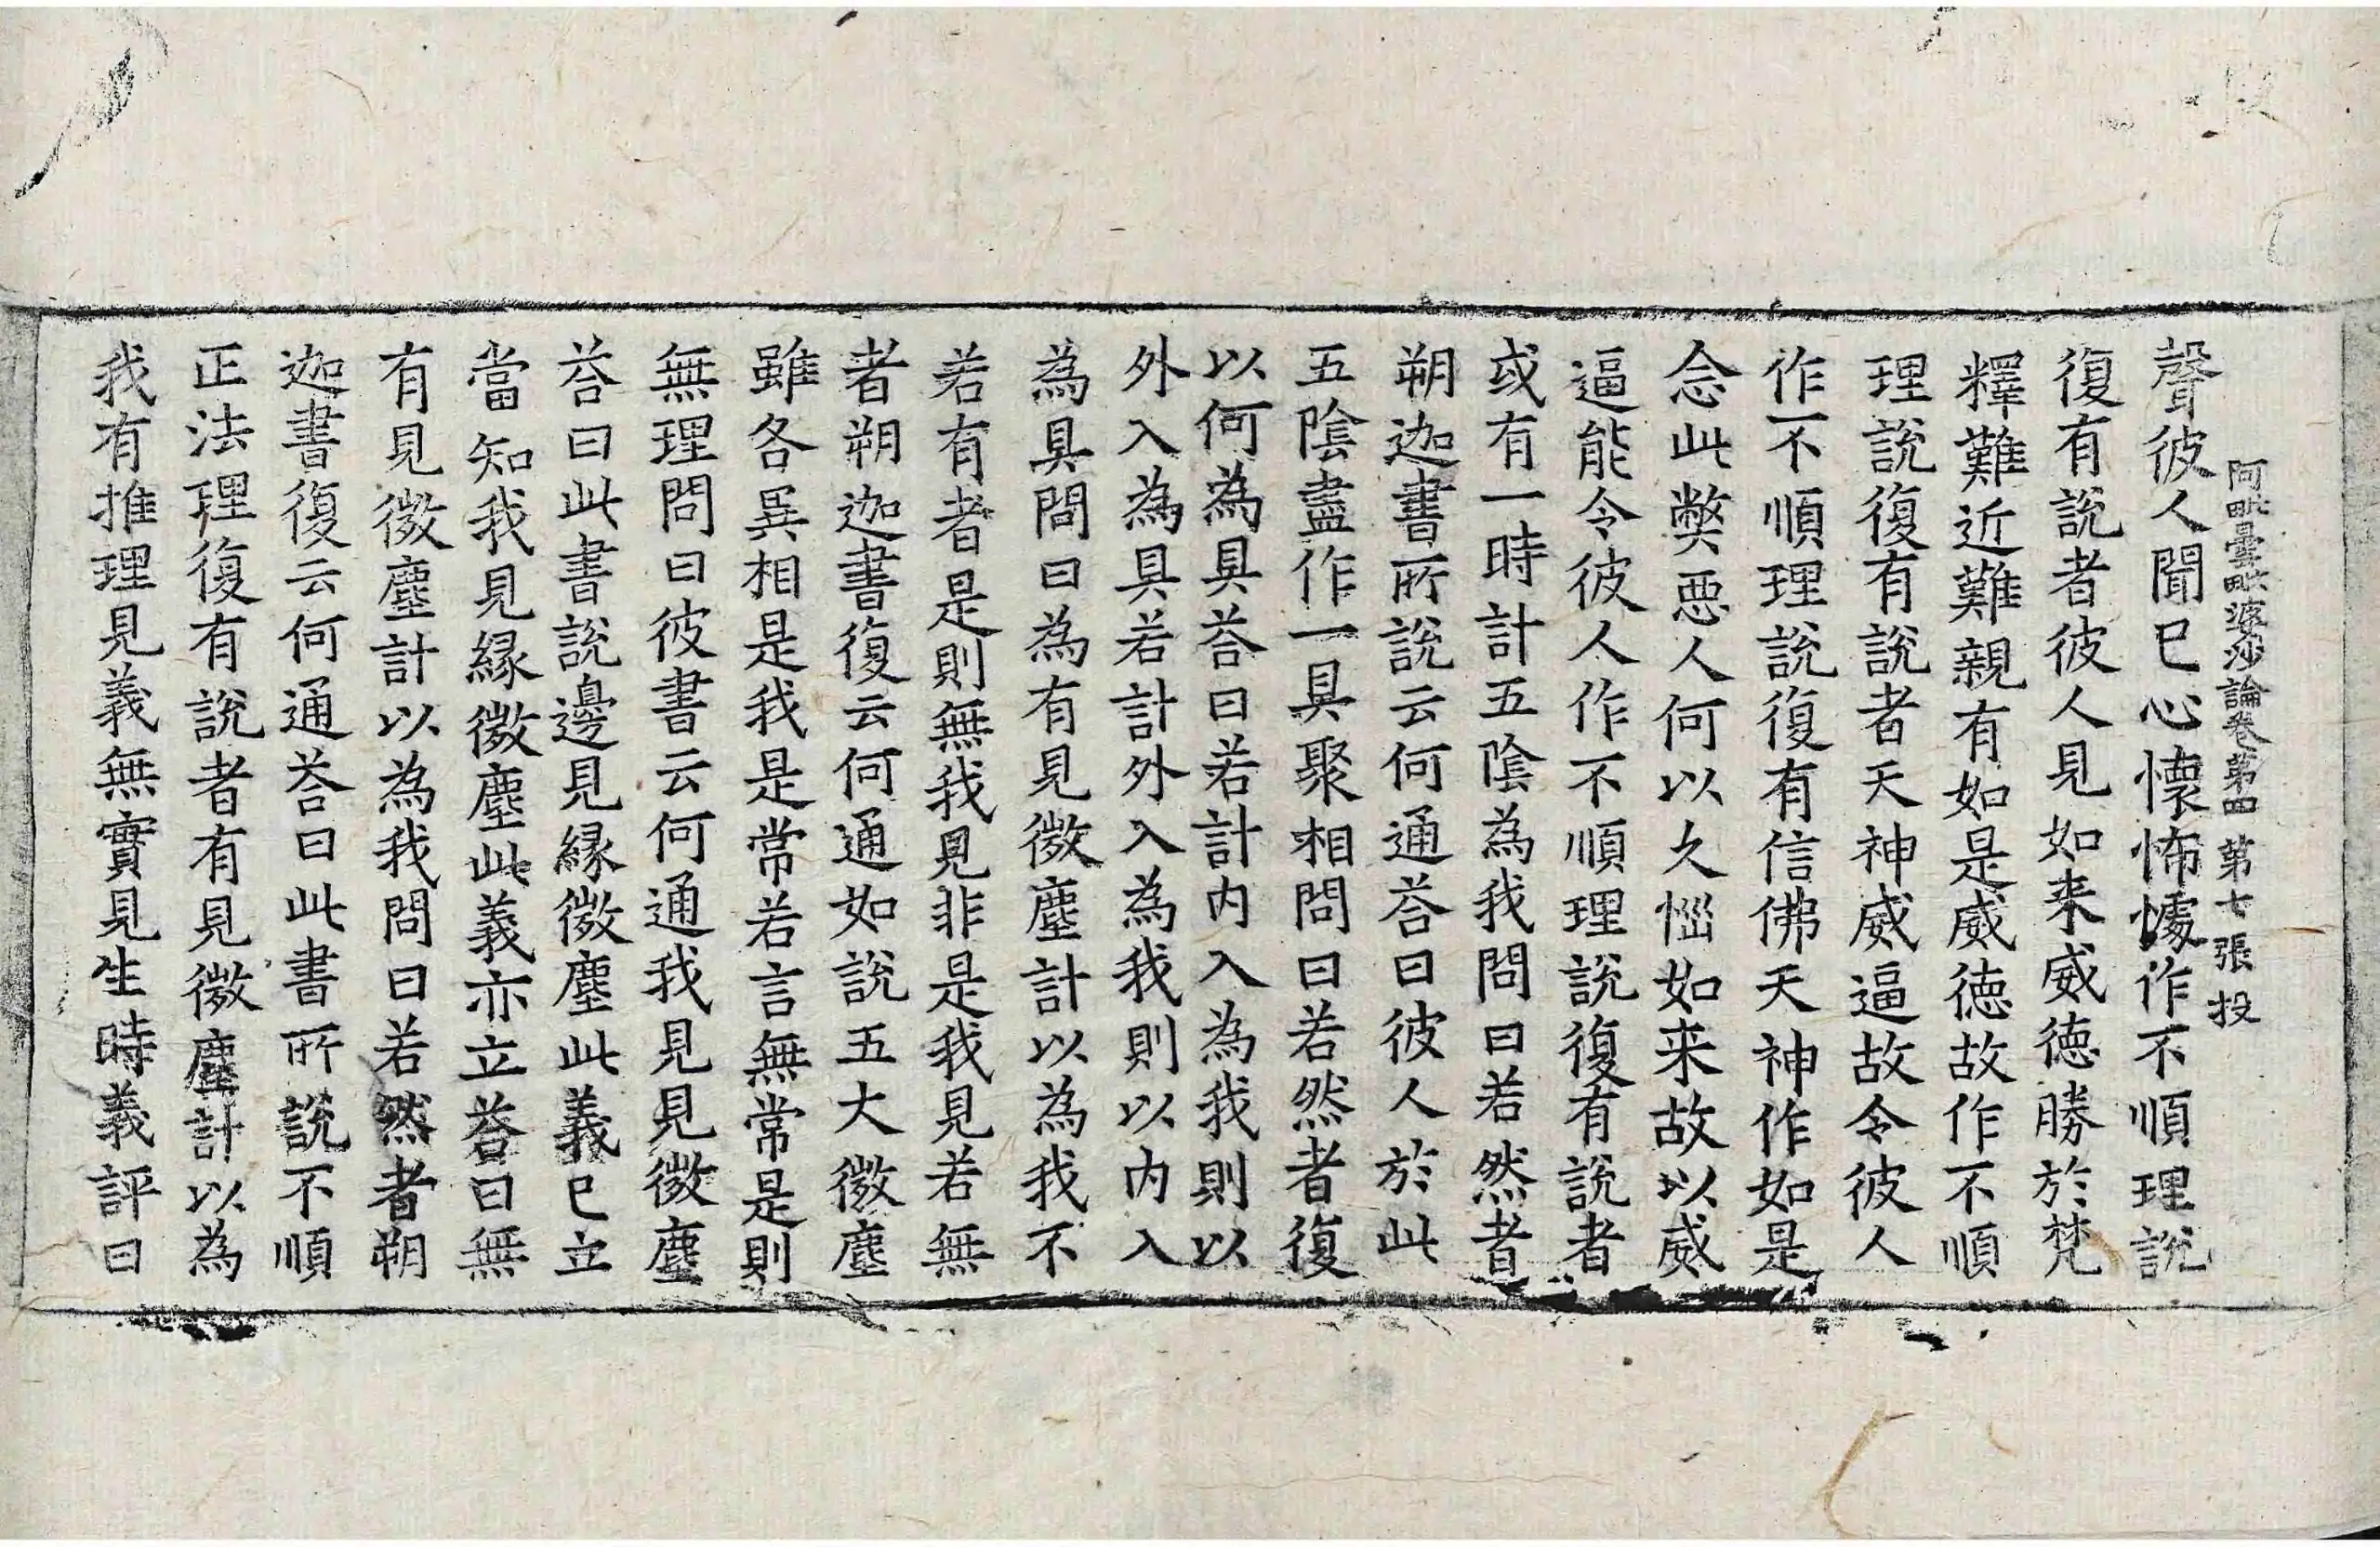 阿毗曇毗婆沙論卷第四 第七張 投
聲彼人聞已心懷怖懅作不順理說
復有說者彼人見如来威德勝於梵
釋難近難親有如是威德故作不順
理說復有說者天神威逼故令彼人
作不順理說復有信佛天神作如是
念此弊惡人何以久惱如来故以威
逼能令彼人作不順理說復有說者
或有一時計五陰為我問曰若然者
朔迦書所說云何通荅曰彼人於此
五陰盡作一具聚相問曰若然者復
以何為具荅曰若計內入為我則以
外入為具若計外入為我則以內入
為具問曰為有見微塵計以為我不
若有者是則無我見非是我見若無
者朔迦書復云何通如說五大微塵
雖各異相是我是常若言無常是則
無理問曰彼書云何通我見見微塵
荅曰此書說邊見緣微塵此義已立
當知我見緣微塵此義亦立荅曰無
有見微塵計以為我問曰若然者朔
迦書復云何通荅曰此書所說不順
正法理復有說者有見微塵計以為
我有推理見義無實見生時義評曰